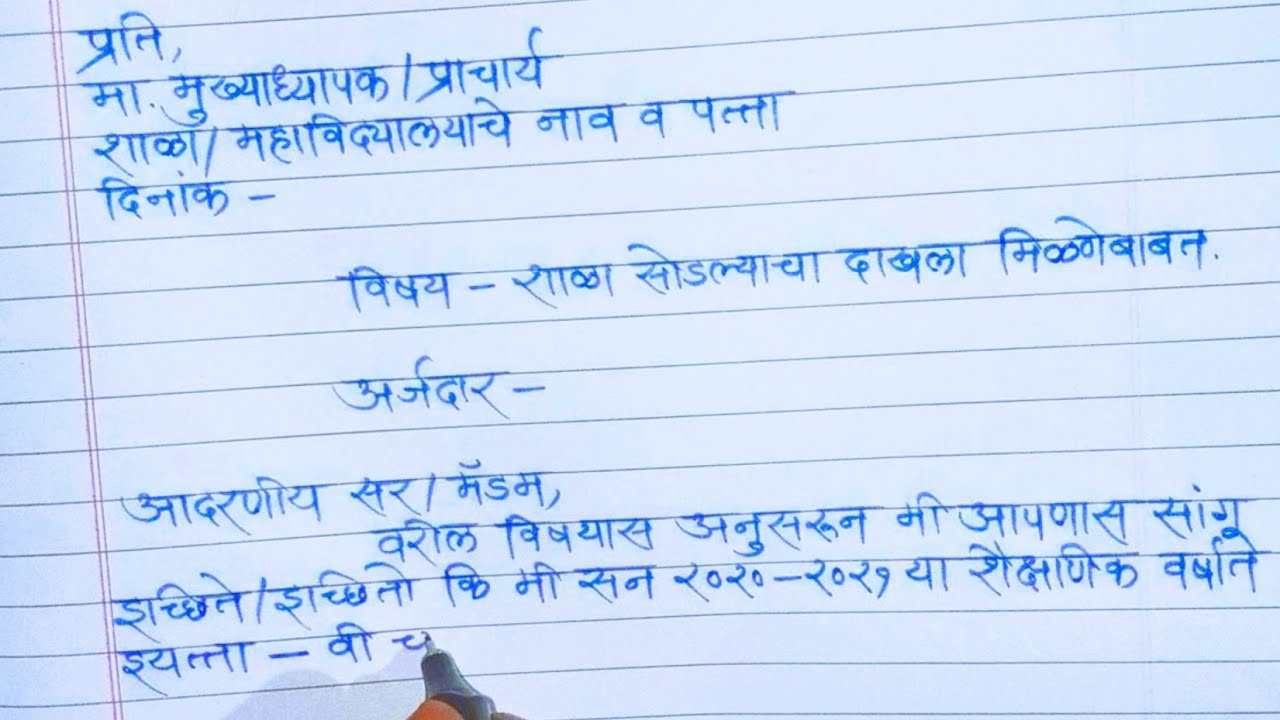 प्रति,
मा. मुख्याध्यापक / प्राचार्य
शाळा / महाविद्यालयाचे नाव व पत्ता
दिनांक -
विषय - शाळा सोडल्याचा दाखला मिळणेबाबत.
अर्जदार -
आदरणीय सर / मॅडम,
वरील विषयास अनुसरून मी आपणास सांगू
इच्छिते / इच्छितो कि मी सन २०२०-२०२१ या शैक्षणिक वर्षात
इयत्ता - वी च